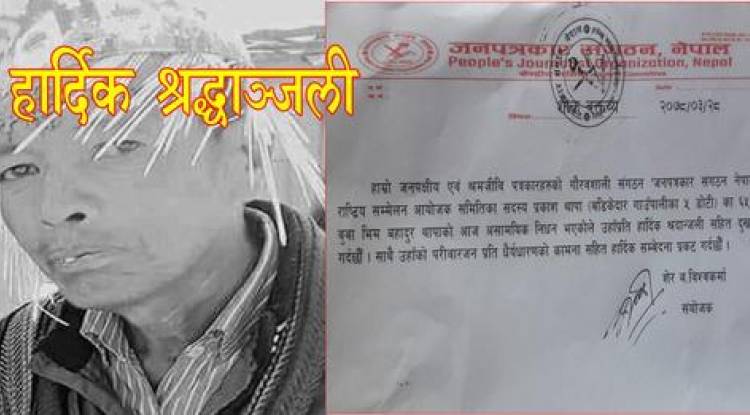 हार्दिक श्रद्धाञ्जली
जनपत्रकार संगठन, नेपाल
People's Journalist Organization, Nepal
शोक वक्तव्य
२०७८/०३/२८
हाम्रो जनपक्षीय एवं श्रमजीवि पत्रकारहरुको गौरवशाली संगठन 'जनपत्रकार संगठन नेपा
राष्ट्रिय सम्मेलन आयोजक समितिका सदस्य प्रकाश थापा (बडिकेदार गाउँपालीका ५ डोटी) का ६५
बुबा भिम बहादुर थापाको आज असामयिक निधन भएकोले उहाँप्रति हार्दिक श्रदान्जली सहित दुख
गर्दछौँ । साथै उहाँको परीवारजन प्रति धैर्यधारणको कामना सहित हार्दिक सम्बेदना प्रकट गर्दछौँ ।
शेर ब.विश्वकर्मा
संयोजक